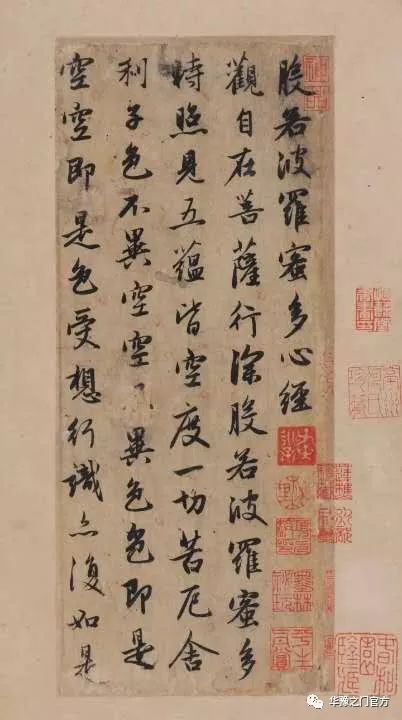 般若波羅蜜多心經
觀自在菩薩行深般若波羅蜜多
時照見五蘊皆空度一切苦厄舍
利子色不異空空不異色色即是
空空即是色受想行識亦復如是
华豫之门官方